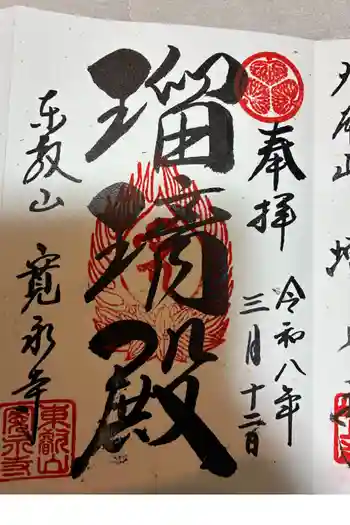 奉拝
令和八年
三月十二日
瑠璃殿
東叡山
寛永寺
東叡山
寛永寺